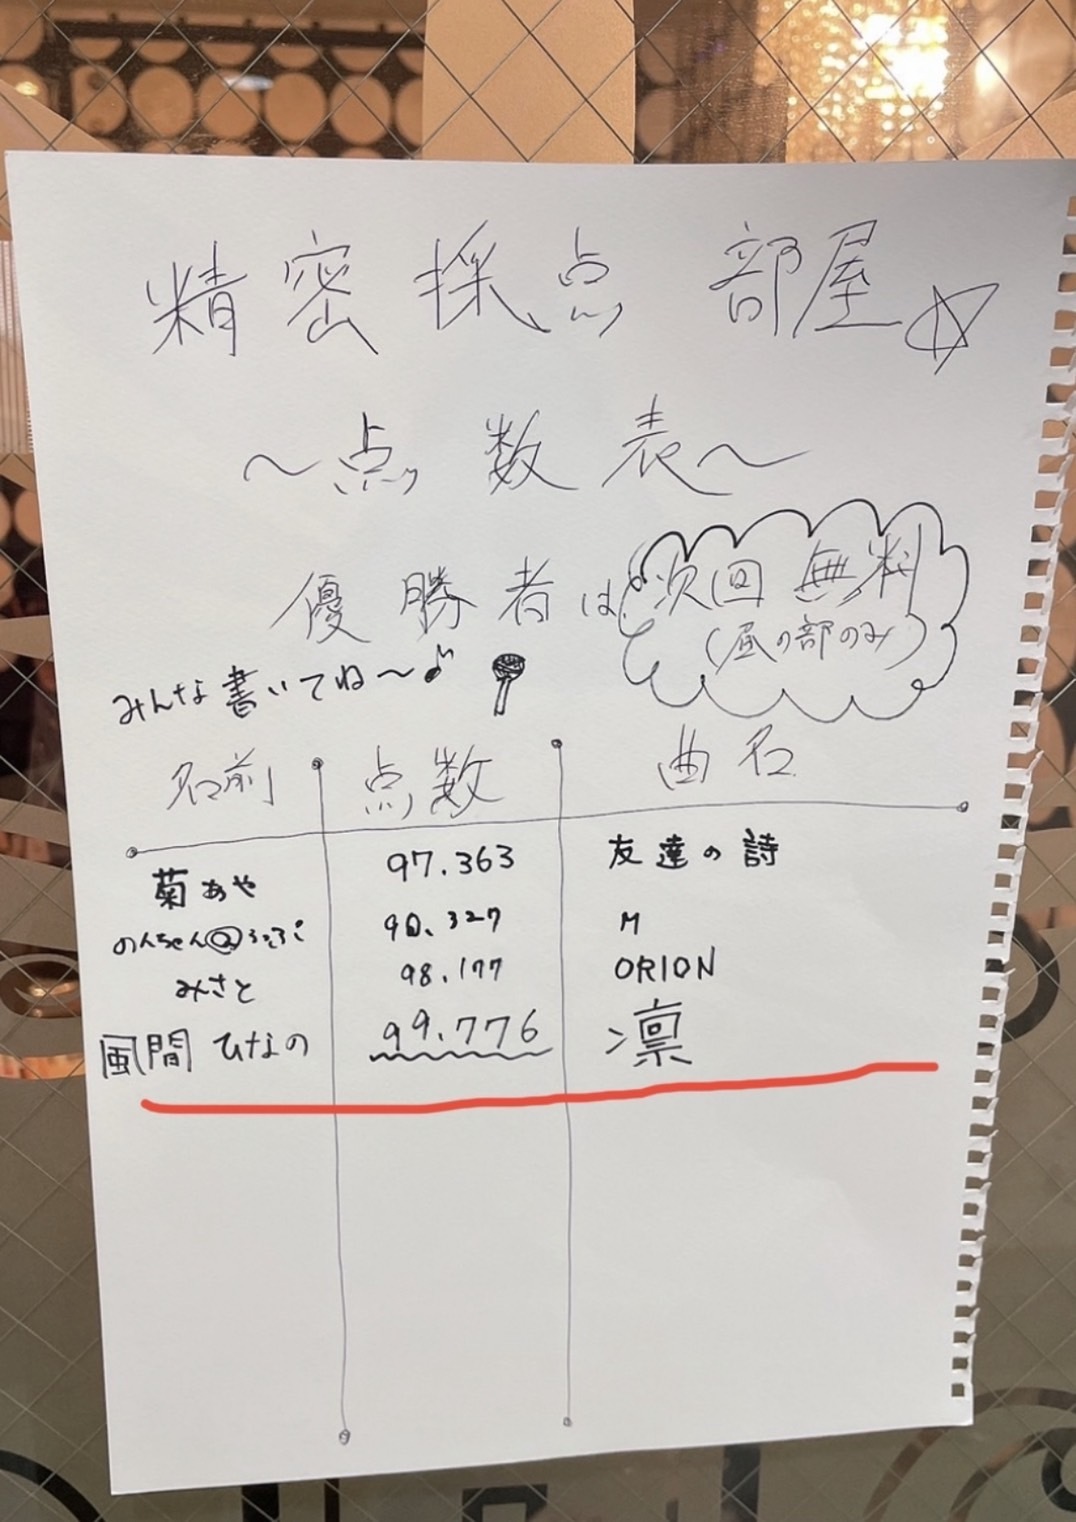 精密採点部屋☆
～点数表～
優勝者は次回無料
(昼の部のみ)
みんな書いてね～♪
名前 点数 曲名
菊あや 97.363 友達の詩
のんちゃん@ 90.327 M
みさと 98.177 ORION
風間ひなの 99.776 凛